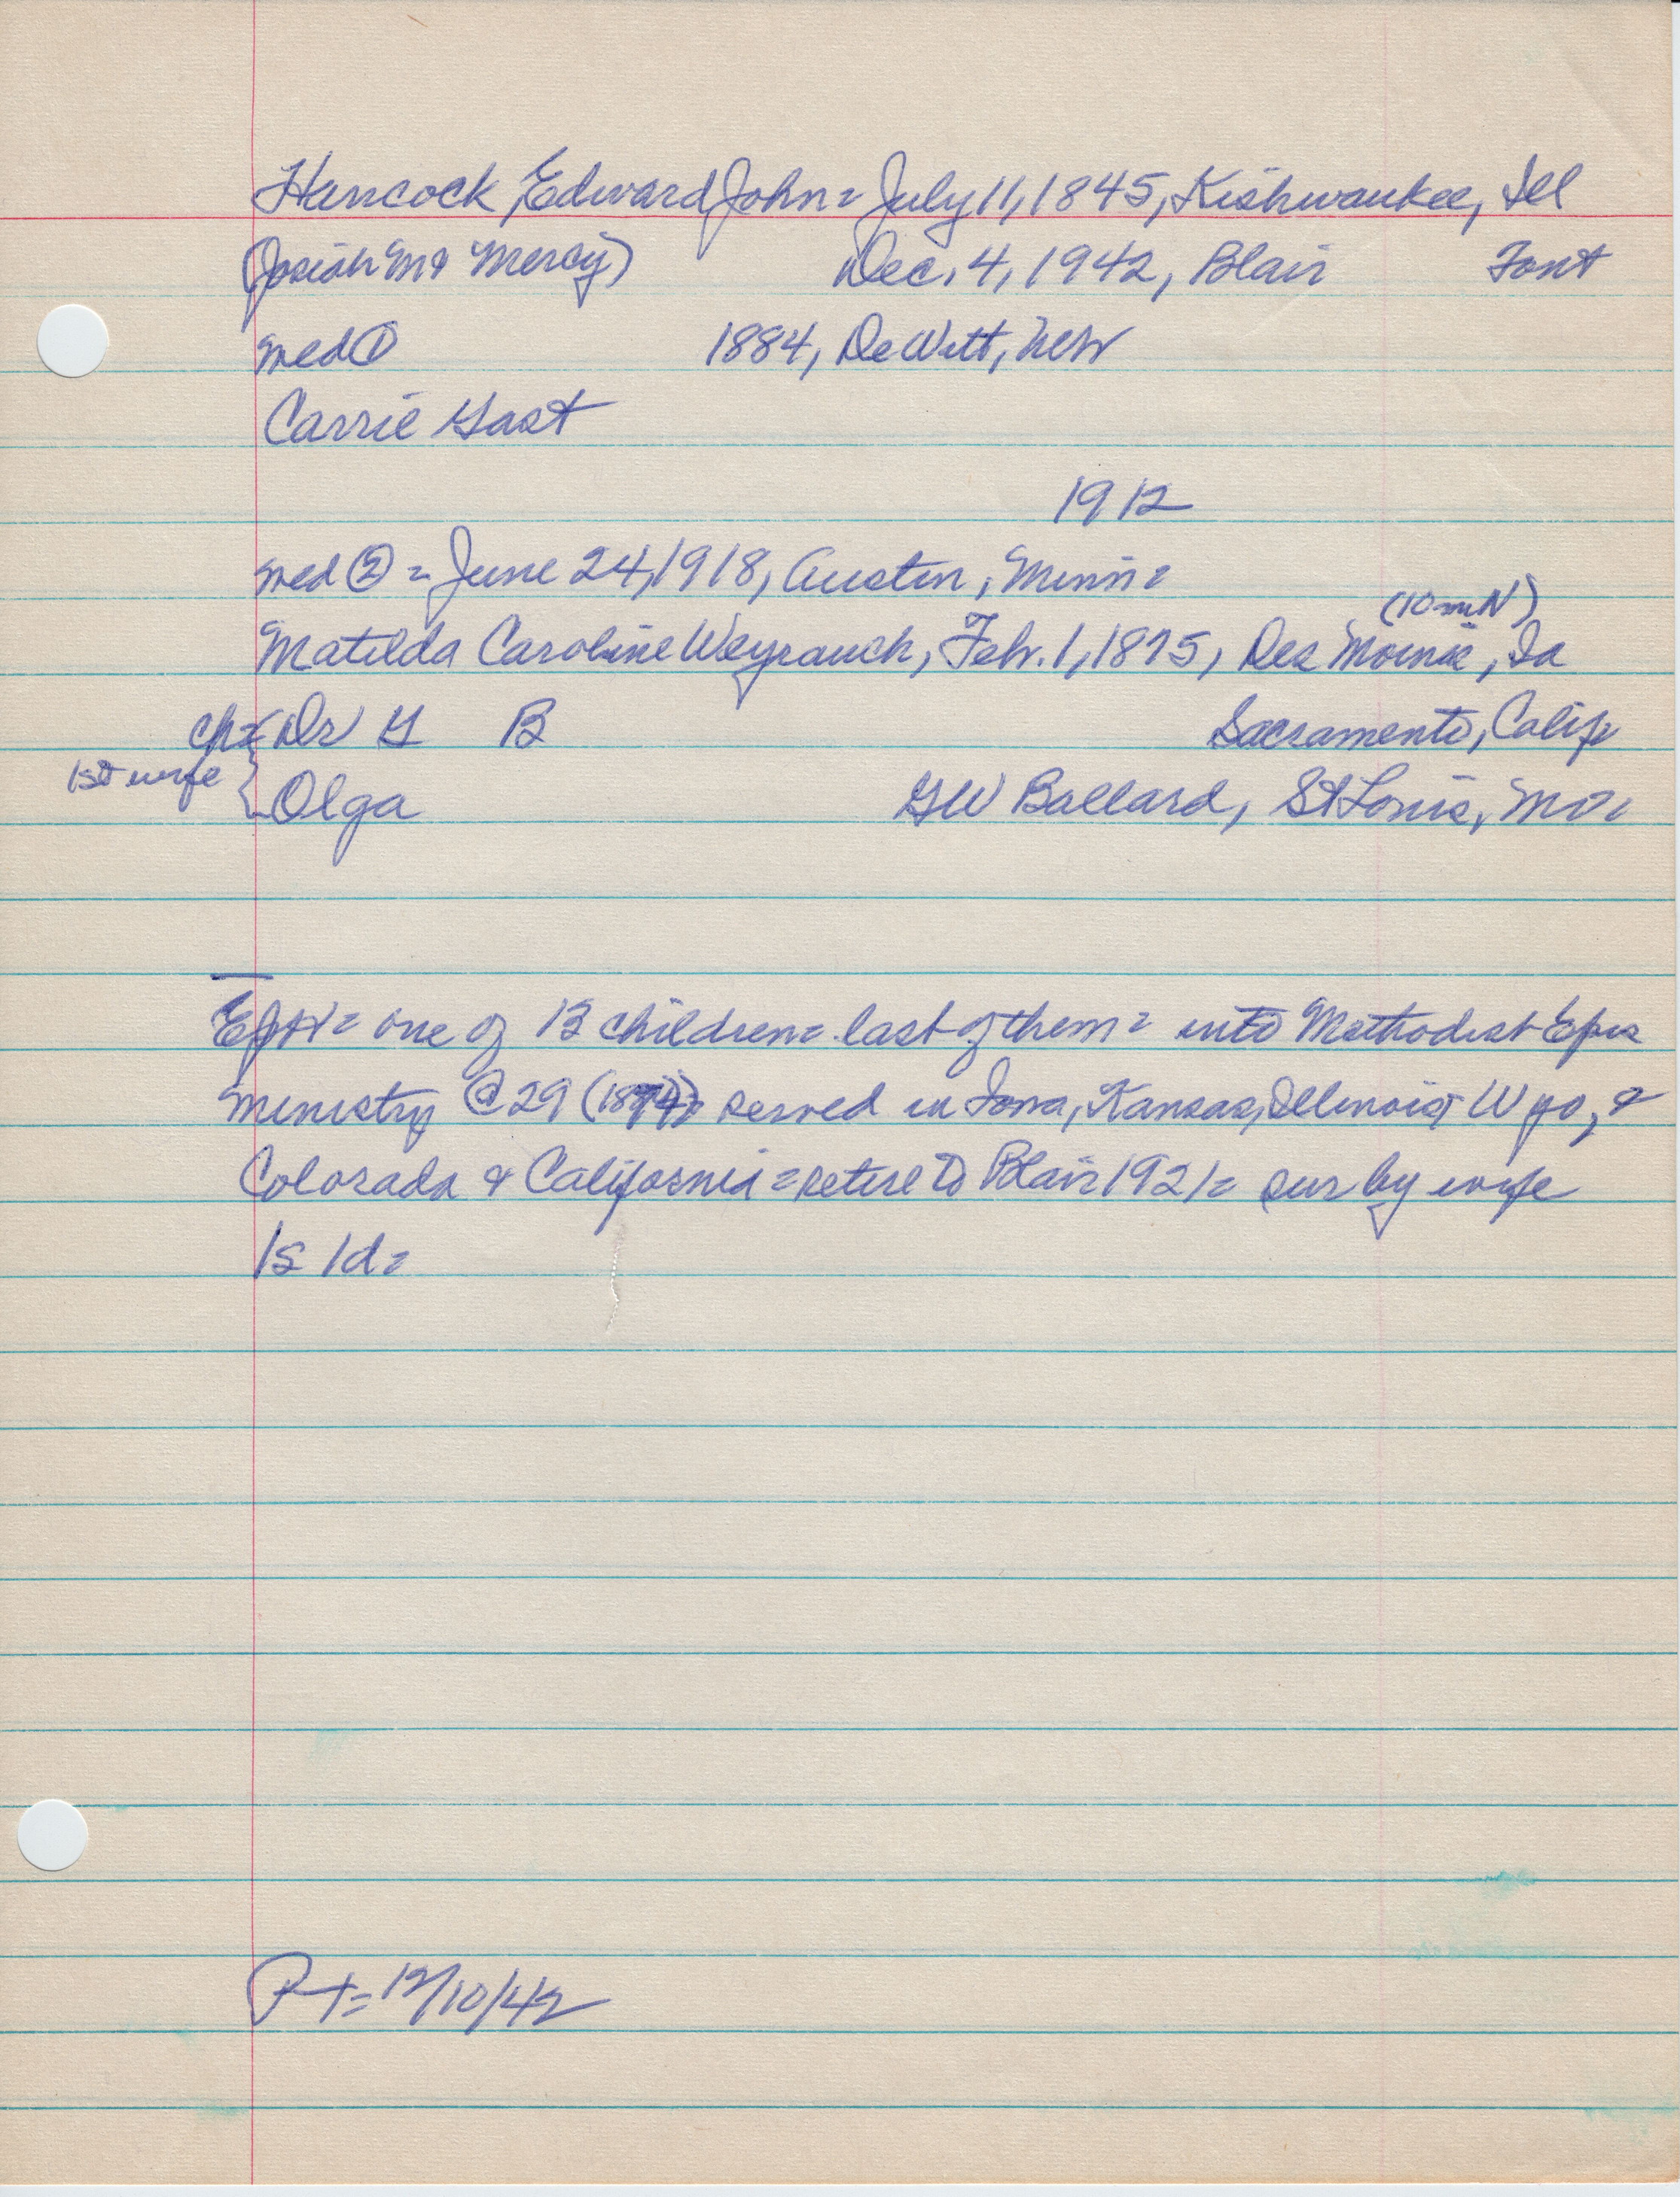 Hancock, Edward John = July 11, 1845, Kishwaukee, Ill
(Josiah M & Mercy) Dec. 4, 1942, Blair Font
med ① 1884, DeWitt, Neb
Carrie Gast
1912
med ② = June 24, 1918, Austin, Minn =
(10 mi N)
Matilda Caroline Weyrauch, Feb. 1, 1875, Des Moines, Ia
ch = { Dr G B Sacramento, Calif
1st wife { Olga GW Ballard, St Louis, Mo =
EJH = one of 13 children = last of them = into Methodist Epis
ministry @ 29 (1874) served in Iowa, Kansas, Illinois, Wyo, &
Colorado & California = retire to Blair 1921 = sur by wife
1s 1d =
PT = 12/10/42